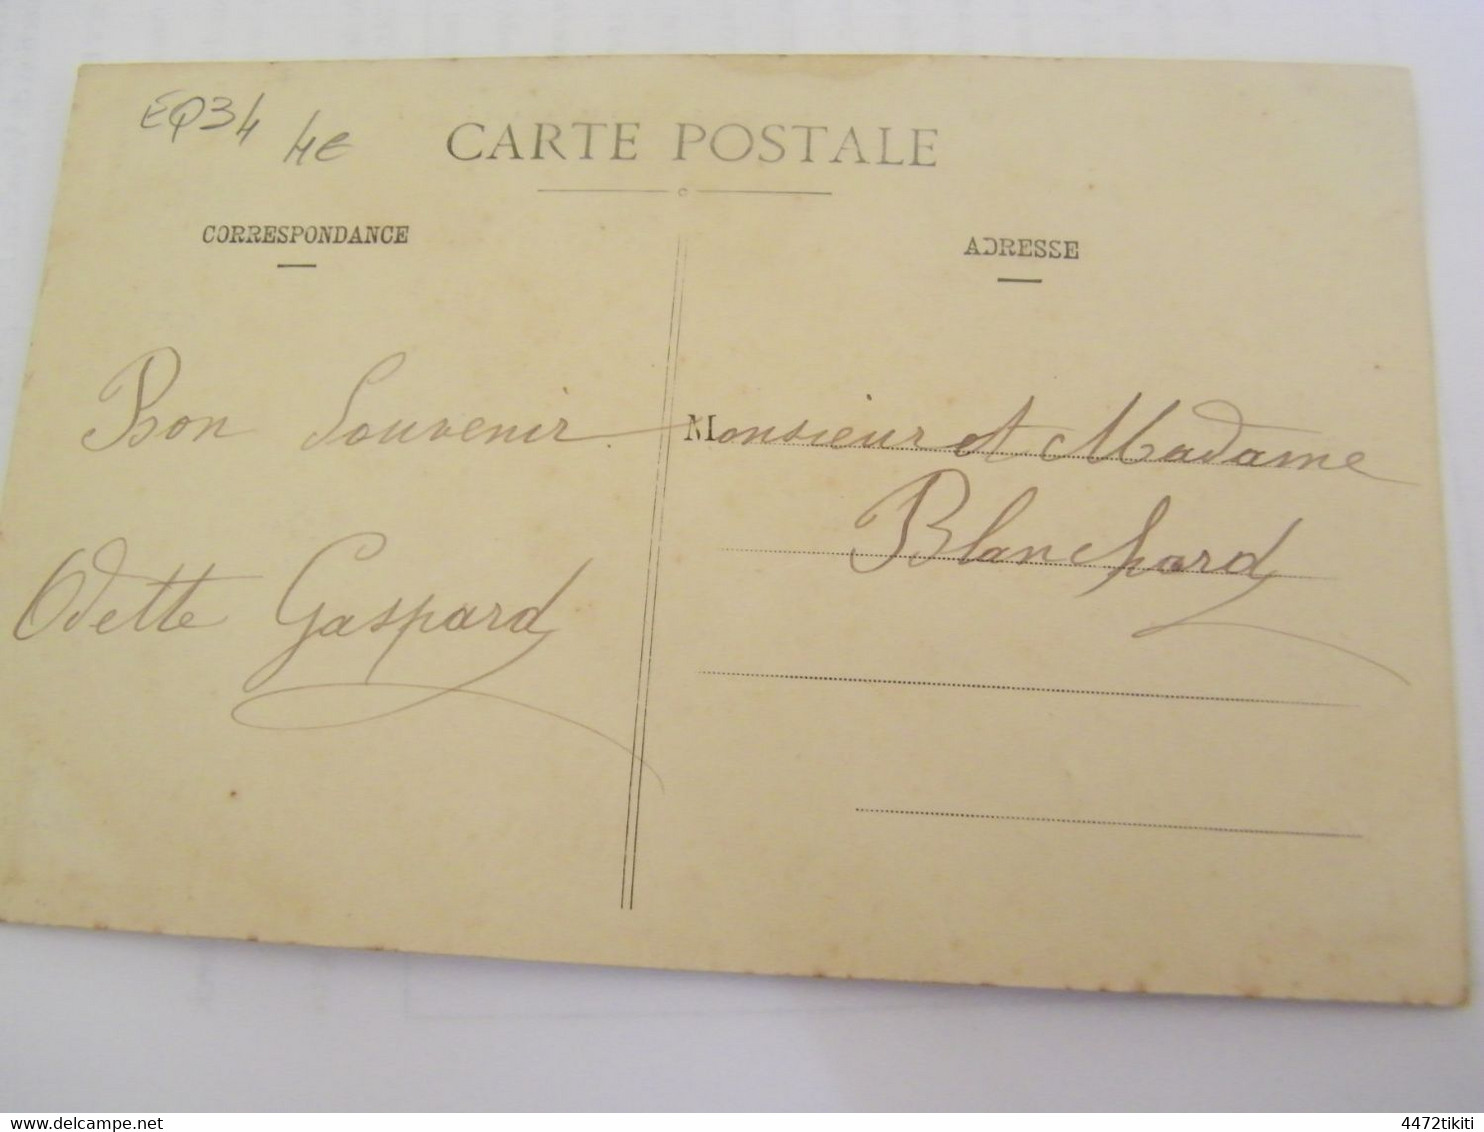 EQ34 4€
CARTE POSTALE
CORRESPONDANCE
ADRESSE
Bon Souvenir
Odette Gaspard
Monsieur et Madame
Blanchard
delcampe.net
4472tikiti